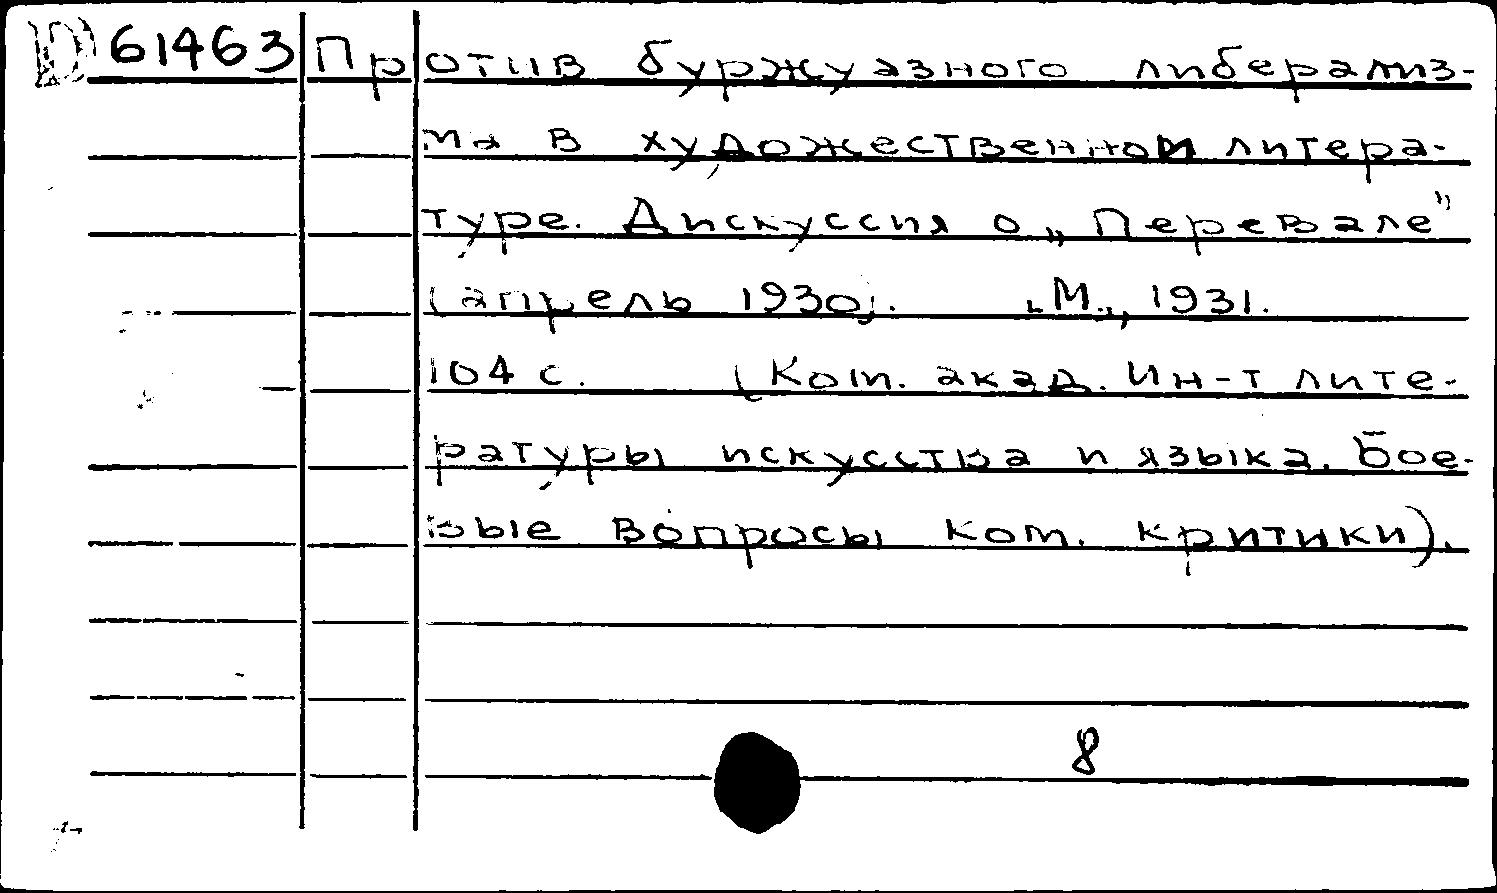 D 61463 Против буржуазного либерализ-
ма в художественной литера-
туре. Дискуссия о „Перевале"
(апрель 1930). М., 1931.
104 с. (Ком. акад. Ин-т лите-
ратуры искусства и языка. Бое-
вые вопросы ком. критики).
8